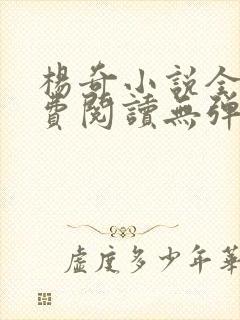 楊奇小說全
費閱讀無彈
虛度多少年華